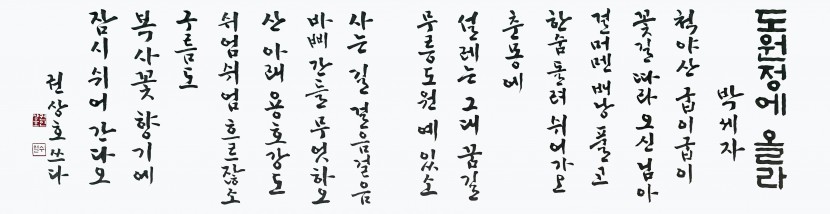 도원정에 올라
박세자
척야산 굽이굽이
꽃길 따라 오신 님아
걸머멘 배낭 풀고
한숨 돌려 쉬어가오
춘몽에
설레는 그대 꿈길
무릉도원 예 있소
사는 길 걸음걸음
바삐 간들 무엇하오
산 아래 용호강도
쉬엄쉬엄 흐르잖소
구름도
복사꽃 향기에
잠시 쉬어 간다오
권상호 쓰다